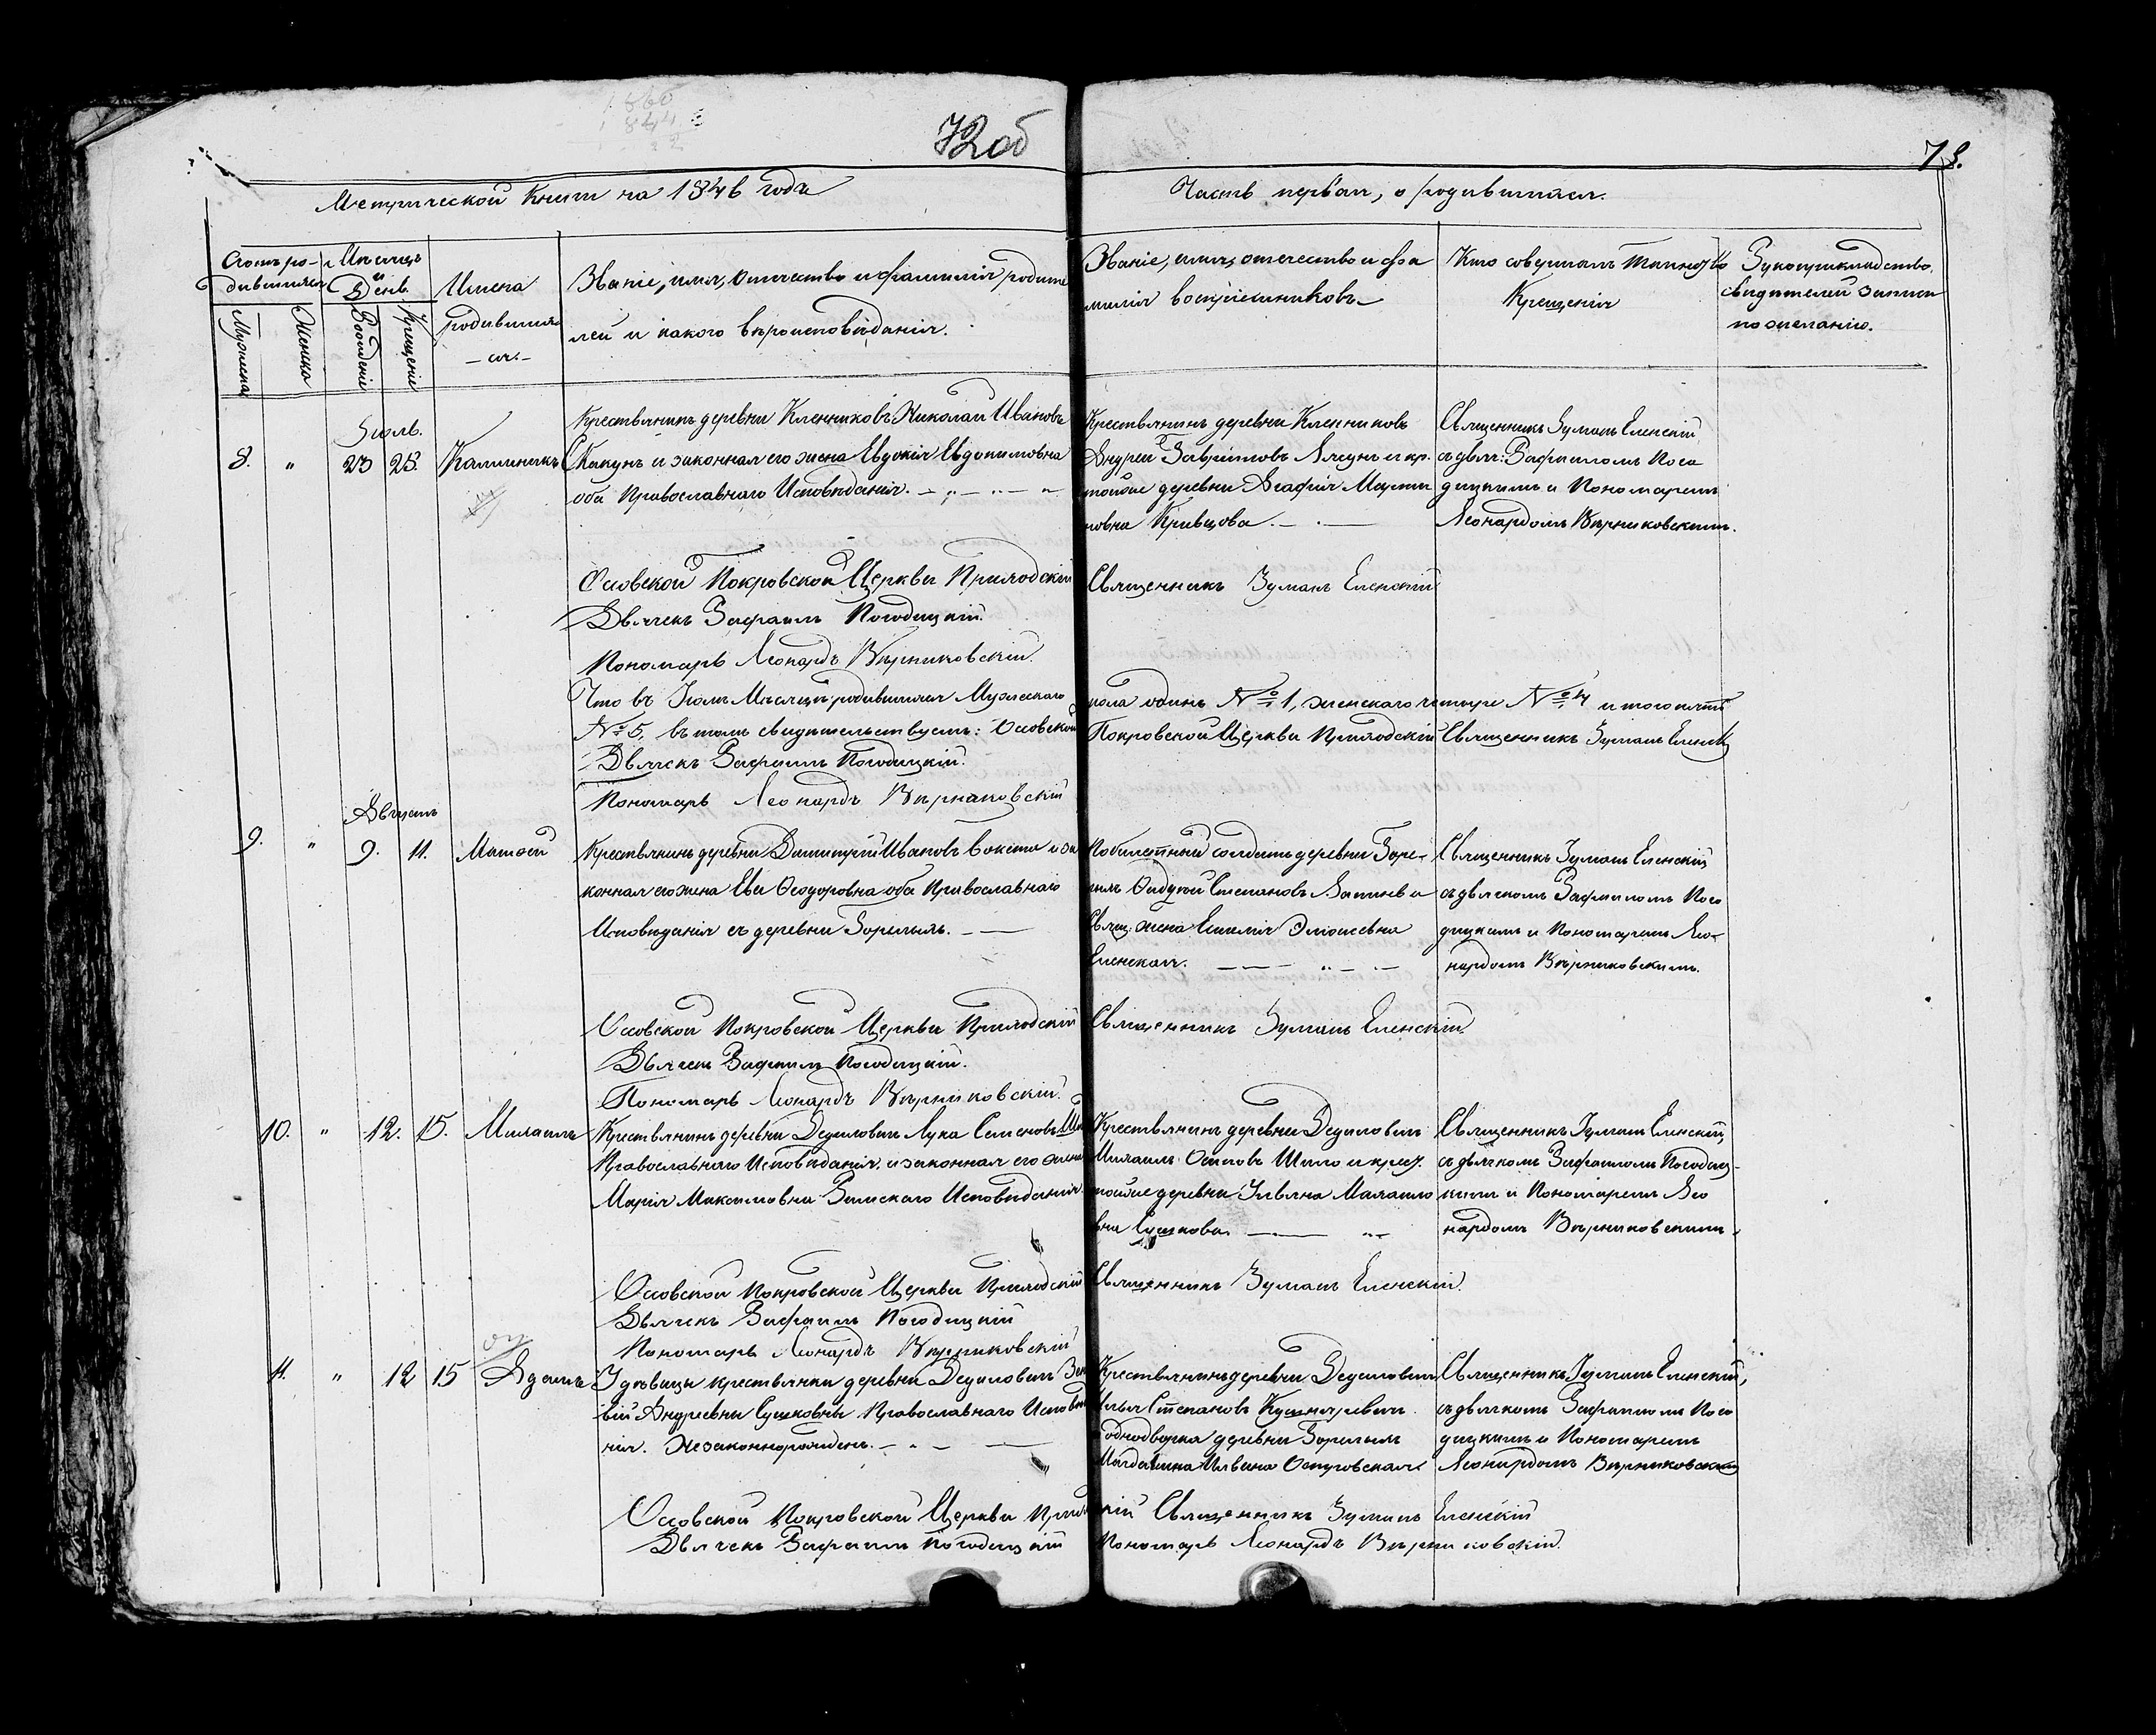 72об
73.
Метрической Книги на 1846 года
Часть первая, о родившихся.
Счетъ ро-
дившихся
Мѣсяцъ
и
День.
Мужеска
Женска
Рожденіе
Крещеніе
Имена
родивших
-ся.-
Званіе, имя, отчество и фамилія родите
лей и какого вѣроисповѣданія.
Званіе, имя, отчество и фа
милія воспріемниковъ.
Кто совершалъ таинство
Крещенія
Рукоприкладство
свидетелей записи
по желанію.
Іюль.
8. " 23 25. Каллиникъ
Крестьянинъ деревни Кленниковъ Николай Ивановъ
Скакунъ и законная его жена Евдокія Евдокимовна
оба Православнаго Исповѣданія.
Крестьянинъ деревни Кленниковъ
Андрей Гавриловъ Ляхунъ и кр.
тойже деревни Агафія Марти
новна Кривцова.
Священникъ Іуліанъ Еленскій
съ дьяч: Рафаиломъ Пого
дицкимъ и Пономаремъ
Леонардомъ Вѣрниковскимъ.
Осовской Покровской Церкви Приходскій Священникъ Іуліанъ Еленскій
Дьячекъ Рафаилъ Погодицкій.
Пономарь Леонардъ Вѣрниковскій.
Что въ Іюлѣ Мѣсяцѣ родившихся Мужескаго пола одинъ № 1, женскаго четыре № 4 итого пять
№ 5, въ томъ свидетельствуемъ: Осовской Покровской Церкви Приходскій Священникъ Іуліанъ Еленскій
Дьячекъ Рафаилъ Погодицкій.
Пономарь Леонардъ Вѣрниковскій
Августъ
9. " 9. 11. Матѳей
Крестьянинъ деревни Димитрій Ивановъ и за
конная его жена Ева Ѳеодоровна оба Православнаго
Исповѣданія съ деревни Горелыхъ.
Побилетный солдатъ деревни Горе-
лыхъ Степановъ и
Свящ. жена Емилія
Еленская.
Священникъ Іуліанъ Еленскій
съ дьячкомъ Рафаиломъ Пого
дицкимъ и Пономаремъ Лео-
нардомъ Вѣрниковскимъ.
Осовской Покровской Церкви Приходскій Священникъ Іуліанъ Еленскій.
Дьячекъ Рафаилъ Погодицкій.
Пономарь Леонардъ Вѣрниковскій.
10. " 12. 15. Михаилъ
Крестьянинъ деревни Дедиловичъ Лука Семеновъ
Православнаго Исповѣданія, и законная его жена
Марія Максимовна Римскаго Исповѣданія
Крестьянинъ деревни Дедиловичъ
Михаилъ Осиповъ Шило и крес.
тойже деревни Ульяна Михаило
вна Сушкова.
Священникъ Іуліанъ Еленскій
съ дьячкомъ Рафаиломъ Погодиц-
кимъ и Пономаремъ Лео
нардомъ Вѣрниковскимъ.
Осовской Покровской Церкви Приходскій Священникъ Іуліанъ Еленскій.
Дьячекъ Рафаилъ Погодицкій
Пономарь Леонардъ Вѣрниковскій
11. " 12 15 Адамъ
У дѣвицы крестьянки деревни Дедиловичъ
Андреевны Сушковны Православнаго Исповѣда
нія. Незаконнорожденъ.
Крестьянинъ деревни Дедиловичъ
Илья Степановъ Кушнеревичъ
однодворка деревни Горелыхъ
Магдалина Ильвина Островская.
Священникъ Іуліанъ Еленскій,
съ дьячкомъ Рафаиломъ Пого
дицкимъ и Пономаремъ
Леонардомъ Вѣрниковскимъ
Осовской Покровской Церкви Приходскій Священникъ Іуліанъ Еленскій
Дьячекъ Рафаилъ Погодицкій Пономарь Леонардъ Вѣрниковскій.